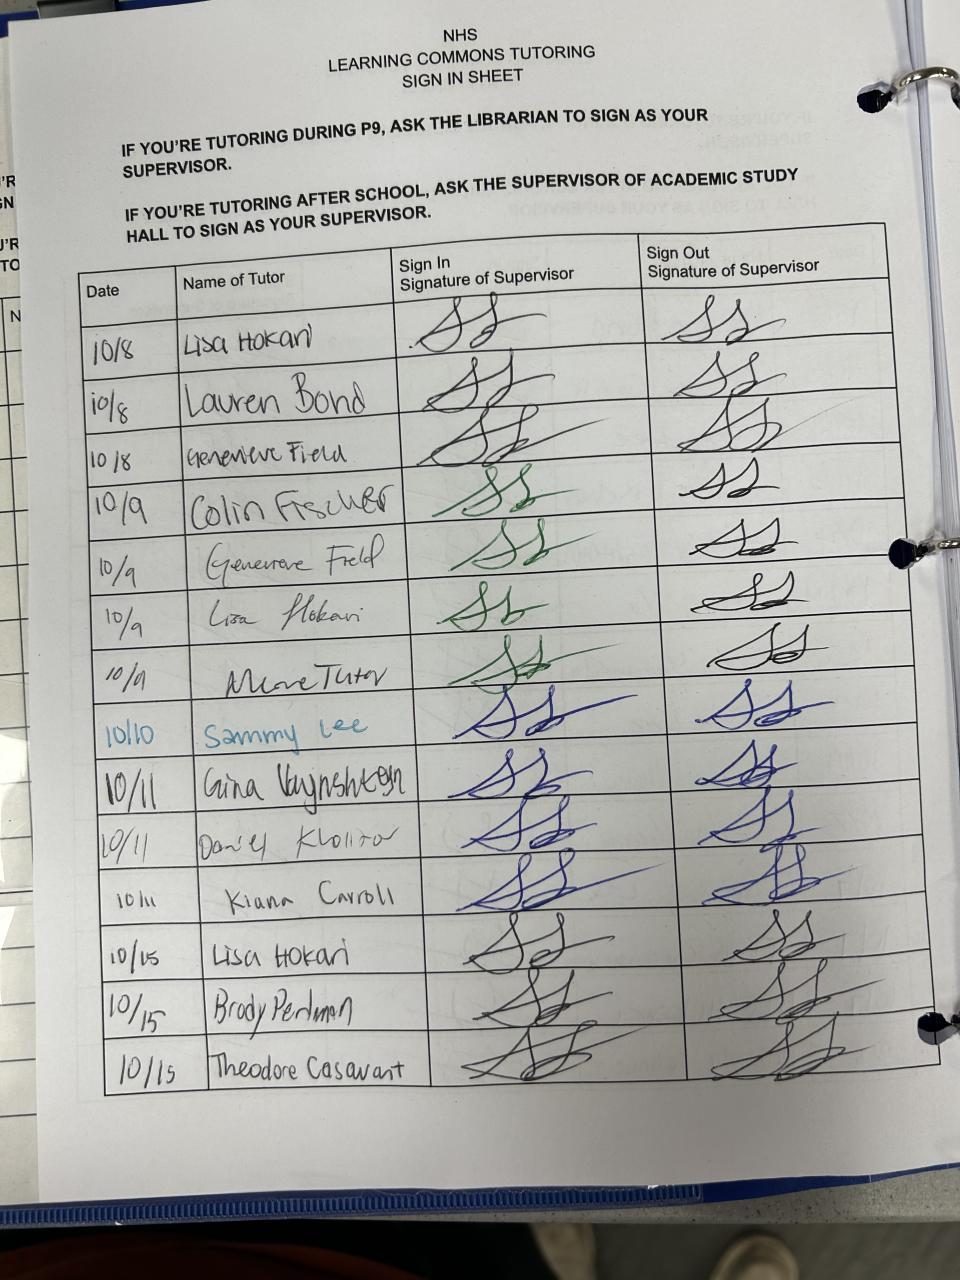 NHS
LEARNING COMMONS TUTORING
SIGN IN SHEET
IF YOU'RE TUTORING DURING P9, ASK THE LIBRARIAN TO SIGN AS YOUR
SUPERVISOR.
IF YOU'RE TUTORING AFTER SCHOOL, ASK THE SUPERVISOR OF ACADEMIC STUDY
HALL TO SIGN AS YOUR SUPERVISOR.
Date Name of Tutor Sign In Signature of Supervisor Sign Out Signature of Supervisor
10/8 Lisa Hokari
10/8 Lauren Bond
10/8 Genevieve Field
10/9 Colin Fischer
10/9 Genevieve Field
10/9 Lisa Hokari
10/9 Tutor
10/10 Sammy Lee
10/11 Gina Vaynshteyn
10/11 Daniel
10/11 Kiana Carroll
10/15 Lisa Hokari
10/15 Brody Perlman
10/15 Theodore Casavant